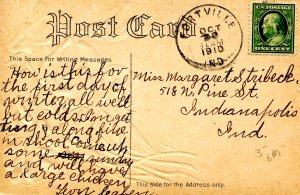 Post Card
This Space For Writing Messages
How is this for
the first day of
winter all well
but colds. Im get
ting along fine
in school. come up
some sunday
and will have
a large chicken
PORTVILLE
OCT
1910
IND
U.S. POSTAGE
ONE CENT
Miss Margaret Stribeck.
518 N. Pine St.
Indianapolis
Ind.
This side for the Address only.